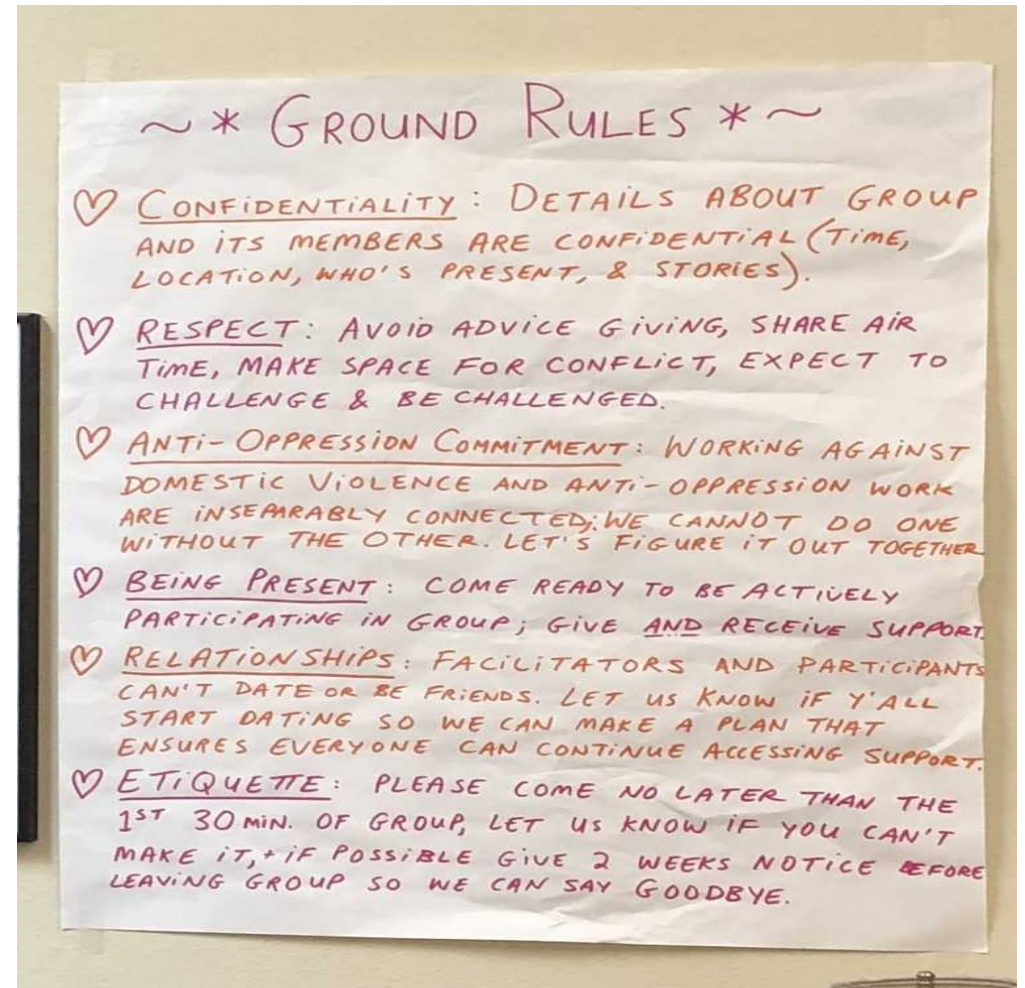 ~ * GROUND RULES * ~
♡ CONFIDENTIALITY: DETAILS ABOUT GROUP
AND ITS MEMBERS ARE CONFIDENTIAL (TIME,
LOCATION, WHO'S PRESENT, & STORIES).
♡ RESPECT: AVOID ADVICE GIVING, SHARE AIR
TIME, MAKE SPACE FOR CONFLICT, EXPECT TO
CHALLENGE & BE CHALLENGED.
♡ ANTI-OPPRESSION COMMITMENT: WORKING AGAINST
DOMESTIC VIOLENCE AND ANTI-OPPRESSION WORK
ARE INSEPARABLY CONNECTED; WE CANNOT DO ONE
WITHOUT THE OTHER. LET'S FIGURE IT OUT TOGETHER
♡ BEING PRESENT: COME READY TO BE ACTIVELY
PARTICIPATING IN GROUP; GIVE AND RECEIVE SUPPORT.
♡ RELATIONSHIPS: FACILITATORS AND PARTICIPANTS
CAN'T DATE OR BE FRIENDS. LET US KNOW IF Y'ALL
START DATING SO WE CAN MAKE A PLAN THAT
ENSURES EVERYONE CAN CONTINUE ACCESSING SUPPORT.
♡ ETIQUETTE: PLEASE COME NO LATER THAN THE
1ST 30 MIN. OF GROUP, LET US KNOW IF YOU CAN'T
MAKE IT, + IF POSSIBLE GIVE 2 WEEKS NOTICE BEFORE
LEAVING GROUP SO WE CAN SAY GOODBYE.